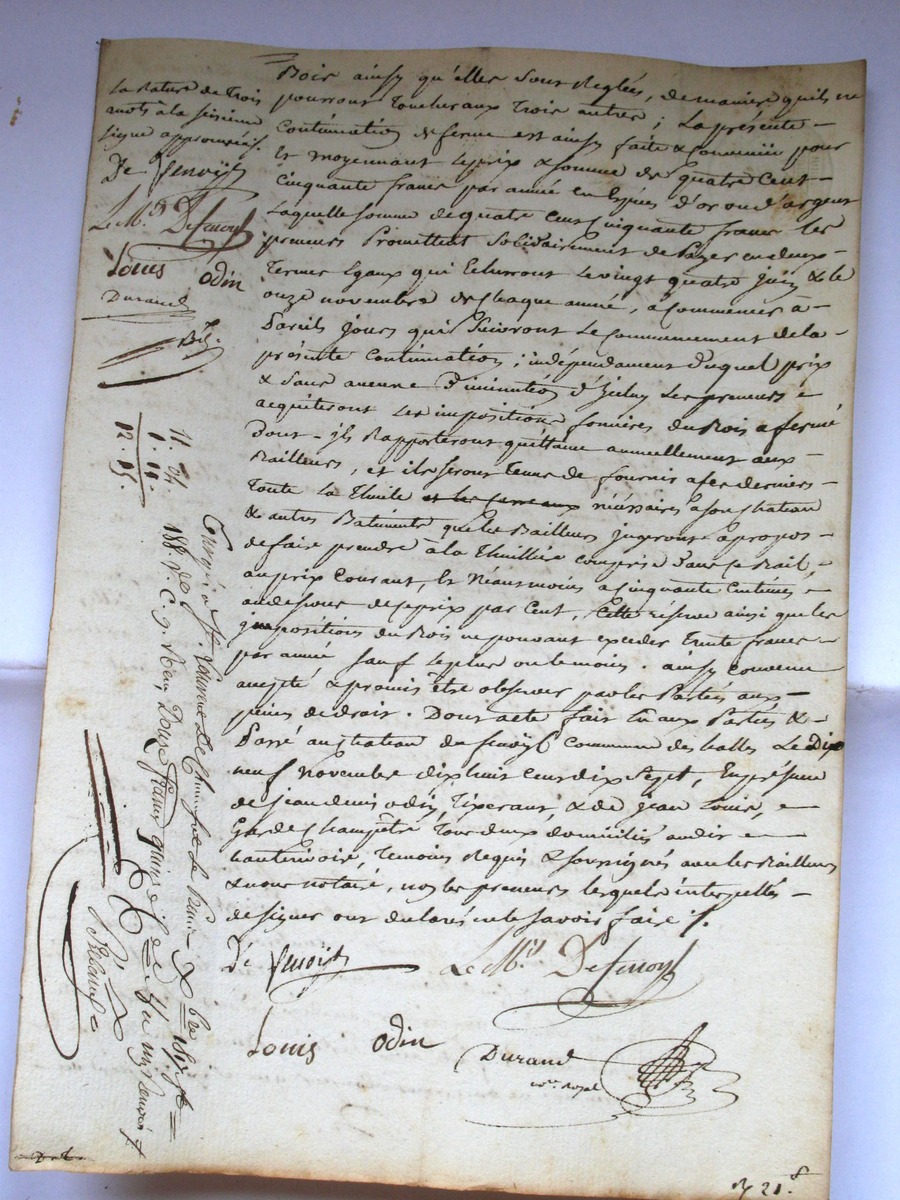 Bois ainsy qu'elles sont Reglées, de maniere qu'ils ne
pourront toucher aux trois autres ; La présente
Continuation de ferme est ainsy faite & convenüe pour
Et moyennant le prix & somme de quatre Cent
Cinquante francs par année en Espèces d'or ou d'argent
Laquelle somme de quatre cent cinquante francs les
preneurs Promettent Solidairement de Payer en deux
Termes Egaux qui Echerront le vingt quatre juin & le
onze novembre de Chaque année, a commencer à
Pareils jours qui suivront le commencement de la
présente Continuation ; indépendament duquel prix
& sans aucune diminution d'Iceluy Les preneurs
acquiteront Les impositions foncieres du Bois afermé
Dont ils Rapporteront quittance annuellement aux
Bailleurs, et ils seront Tenus de fournir a ses derniers
Toute la Thuile et les carreaux nécéssaires à son chateau
& autres Batiments que les Bailleurs jugeront àpropos
de faire prendre à la Thuilliée comprise dans ce Bail,
au prix Courant, Et Néantmoins a Cinquante Centimes
audessous de ce prix par Cent, Cette réserve ainsi que les
impositions du Bois ne pouvant exceder Trente francs
par année sauf le plus ou le moins. ainsy convenu
accepté & promis être observer par les Parties aux
peines de droit. Dont acte fait Lu aux Parties &
Passé au chateau de fenoÿl commune des halles Le Dix
neuf Novembre dix huit cent dix Sept, En présence
de jean denis odin, Tixerant, & de jean Louis,
Garde Champêtre Tous deux domiciliés audit
hauterivoire, Temoins Requis & soussignés avec les Bailleurs
& nous notaire, non les preneurs lesquels interpellés
de signer ont declaré ne le savoir faire ./.
De fenoÿl Le M.is De fenoyl
Louis odin Durand
no.re royal
La Rature de Trois
mots à la seizieme
ligne approuvée ./.
De fenoÿl
Le M.is De fenoyl
Louis odin
Durand
11. 04.
1. 11
12. 15.
Douze francs quinze